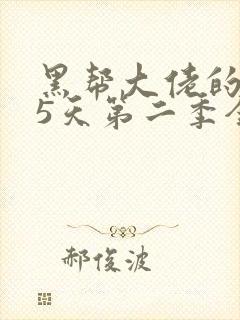 黑帮大佬的
5天第二季全
郝俊波